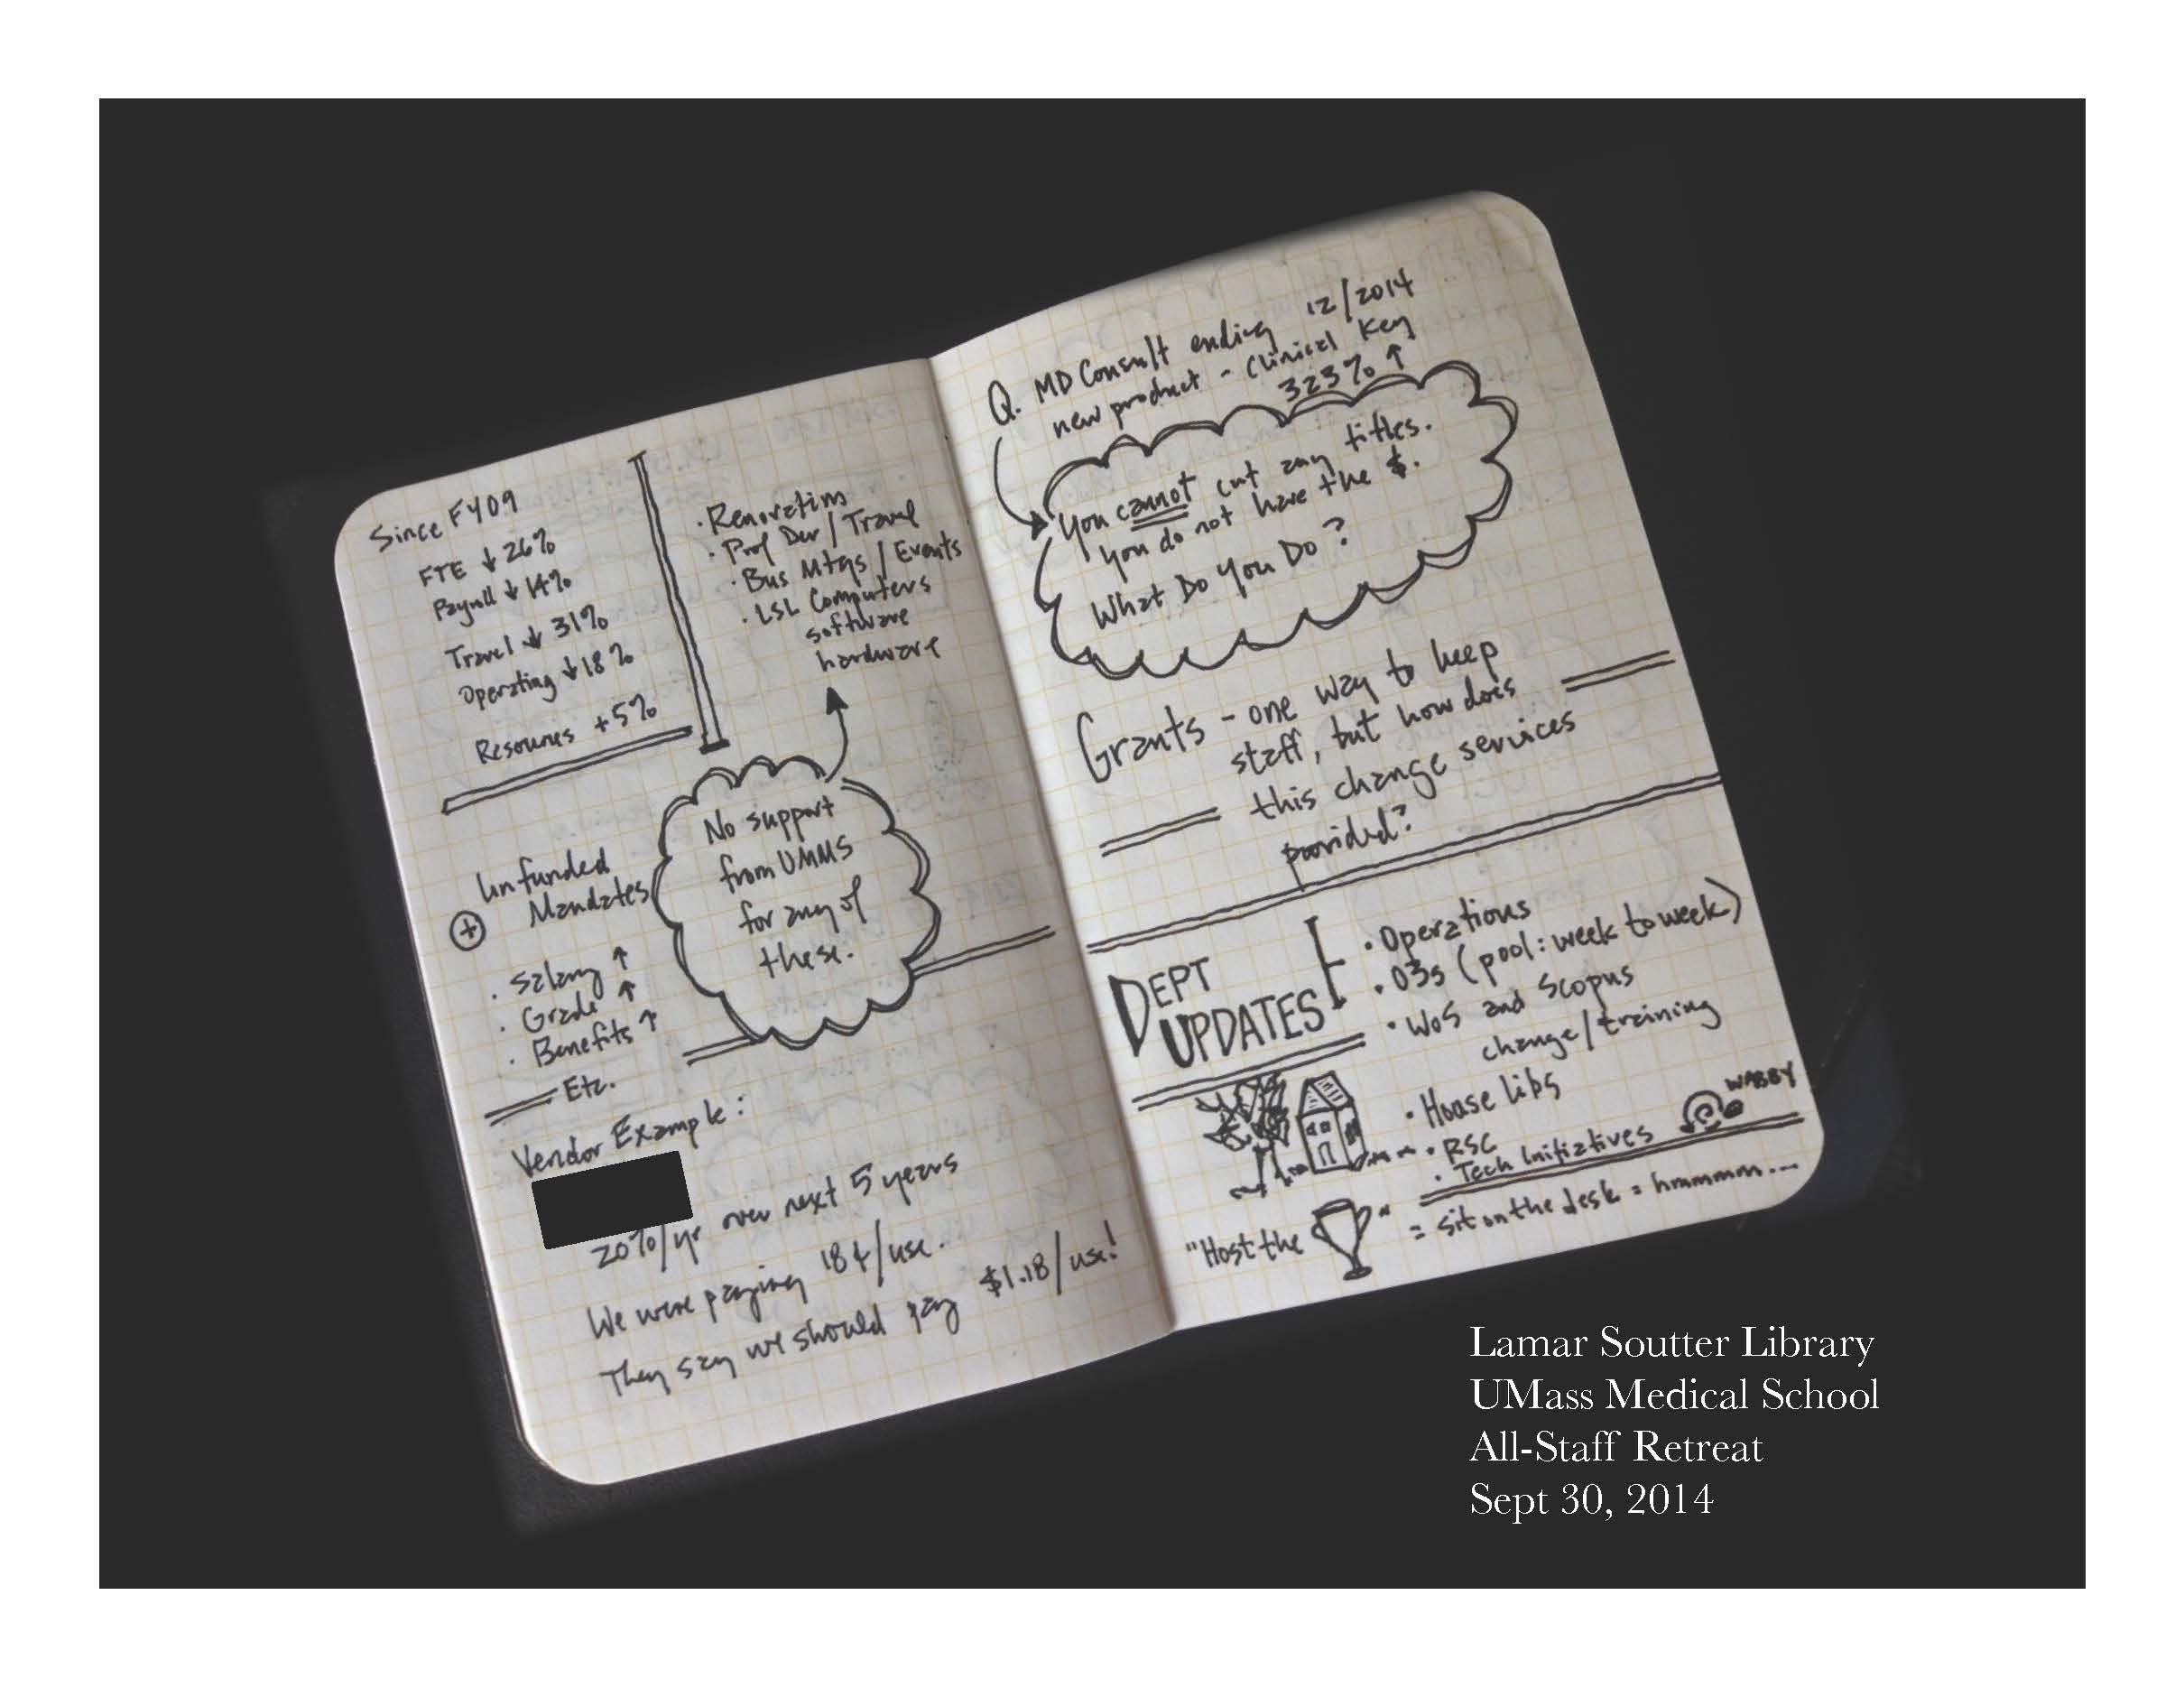 Since FY09
FTE ↓ 26%
Payroll ↓ 14%
Travel ↓ 31%
Operating ↓ 18%
Resources +5%
· Renovations
· Prof Dev / Travel
· Bus Mtgs / Events
· LSL Computers
software
hardware
No support
from UMMS
for any of
these.
Unfunded
+ Mandates
· Salary ↑
· Grade ↑
· Benefits ↑
Etc.
Vendor Example:
20%/yr over next 5 years
We were paying 18¢/use.
They say we should pay $1.18/use!
Q. MD Consult ending 12/2014
new product - Clinical Key
323% ↑
You cannot cut any titles.
You do not have the $.
What Do You Do?
Grants - one way to keep
staff, but how does
this change services
provided?
DEPT
UPDATES
· Operations
· 03s (pool: week to week)
· WoS and Scopus
change/training
· House libs
· RSC
· Tech Initiatives
WABBY
"Host the " = sit on the desk = hmmmm...
Lamar Soutter Library
UMass Medical School
All-Staff Retreat
Sept 30, 2014